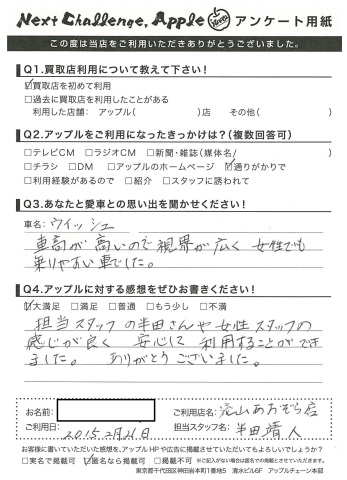 Next Challenge, Apple アンケート用紙
この度は当店をご利用いただきありがとうございました。
Q1.買取店利用について教えて下さい！
☑買取店を初めて利用
□過去に買取店を利用したことがある
利用した店舗： アップル( )店 その他( )
Q2.アップルをご利用になったきっかけは？(複数回答可)
□テレビCM □ラジオCM □新聞・雑誌(媒体名 )
□チラシ □DM □アップルのホームページ ☑通りがかりで
□利用経験があるので □紹介 □スタッフに誘われて
Q3.あなたと愛車との思い出を聞かせください！
車名： ウィッシュ
車高が高いので視界が広く 女性でも
乗りやすい車でした。
Q4.アップルに対する感想をぜひお書きください！
☑大満足 □満足 □普通 □もう少し □不満
担当スタッフの半田さんや女性スタッフの
感じが良く 安心して利用することができ
ました。 ありがとうございました。
お名前：
ご利用店名： 流山あおぞら店
ご利用日： 2015.2月21日
担当スタッフ名： 半田靖人
お客様に書いていただいた感想を、アップルHPや広告に掲載させていただいてもよろしいでしょうか？
□実名で掲載可 ☑匿名なら掲載可 □掲載不可 ※ご記入がない場合は匿名での掲載とさせていただきます。
東京都千代田区神田岩本町1番地5 清水ビル6F アップルチェーン本部